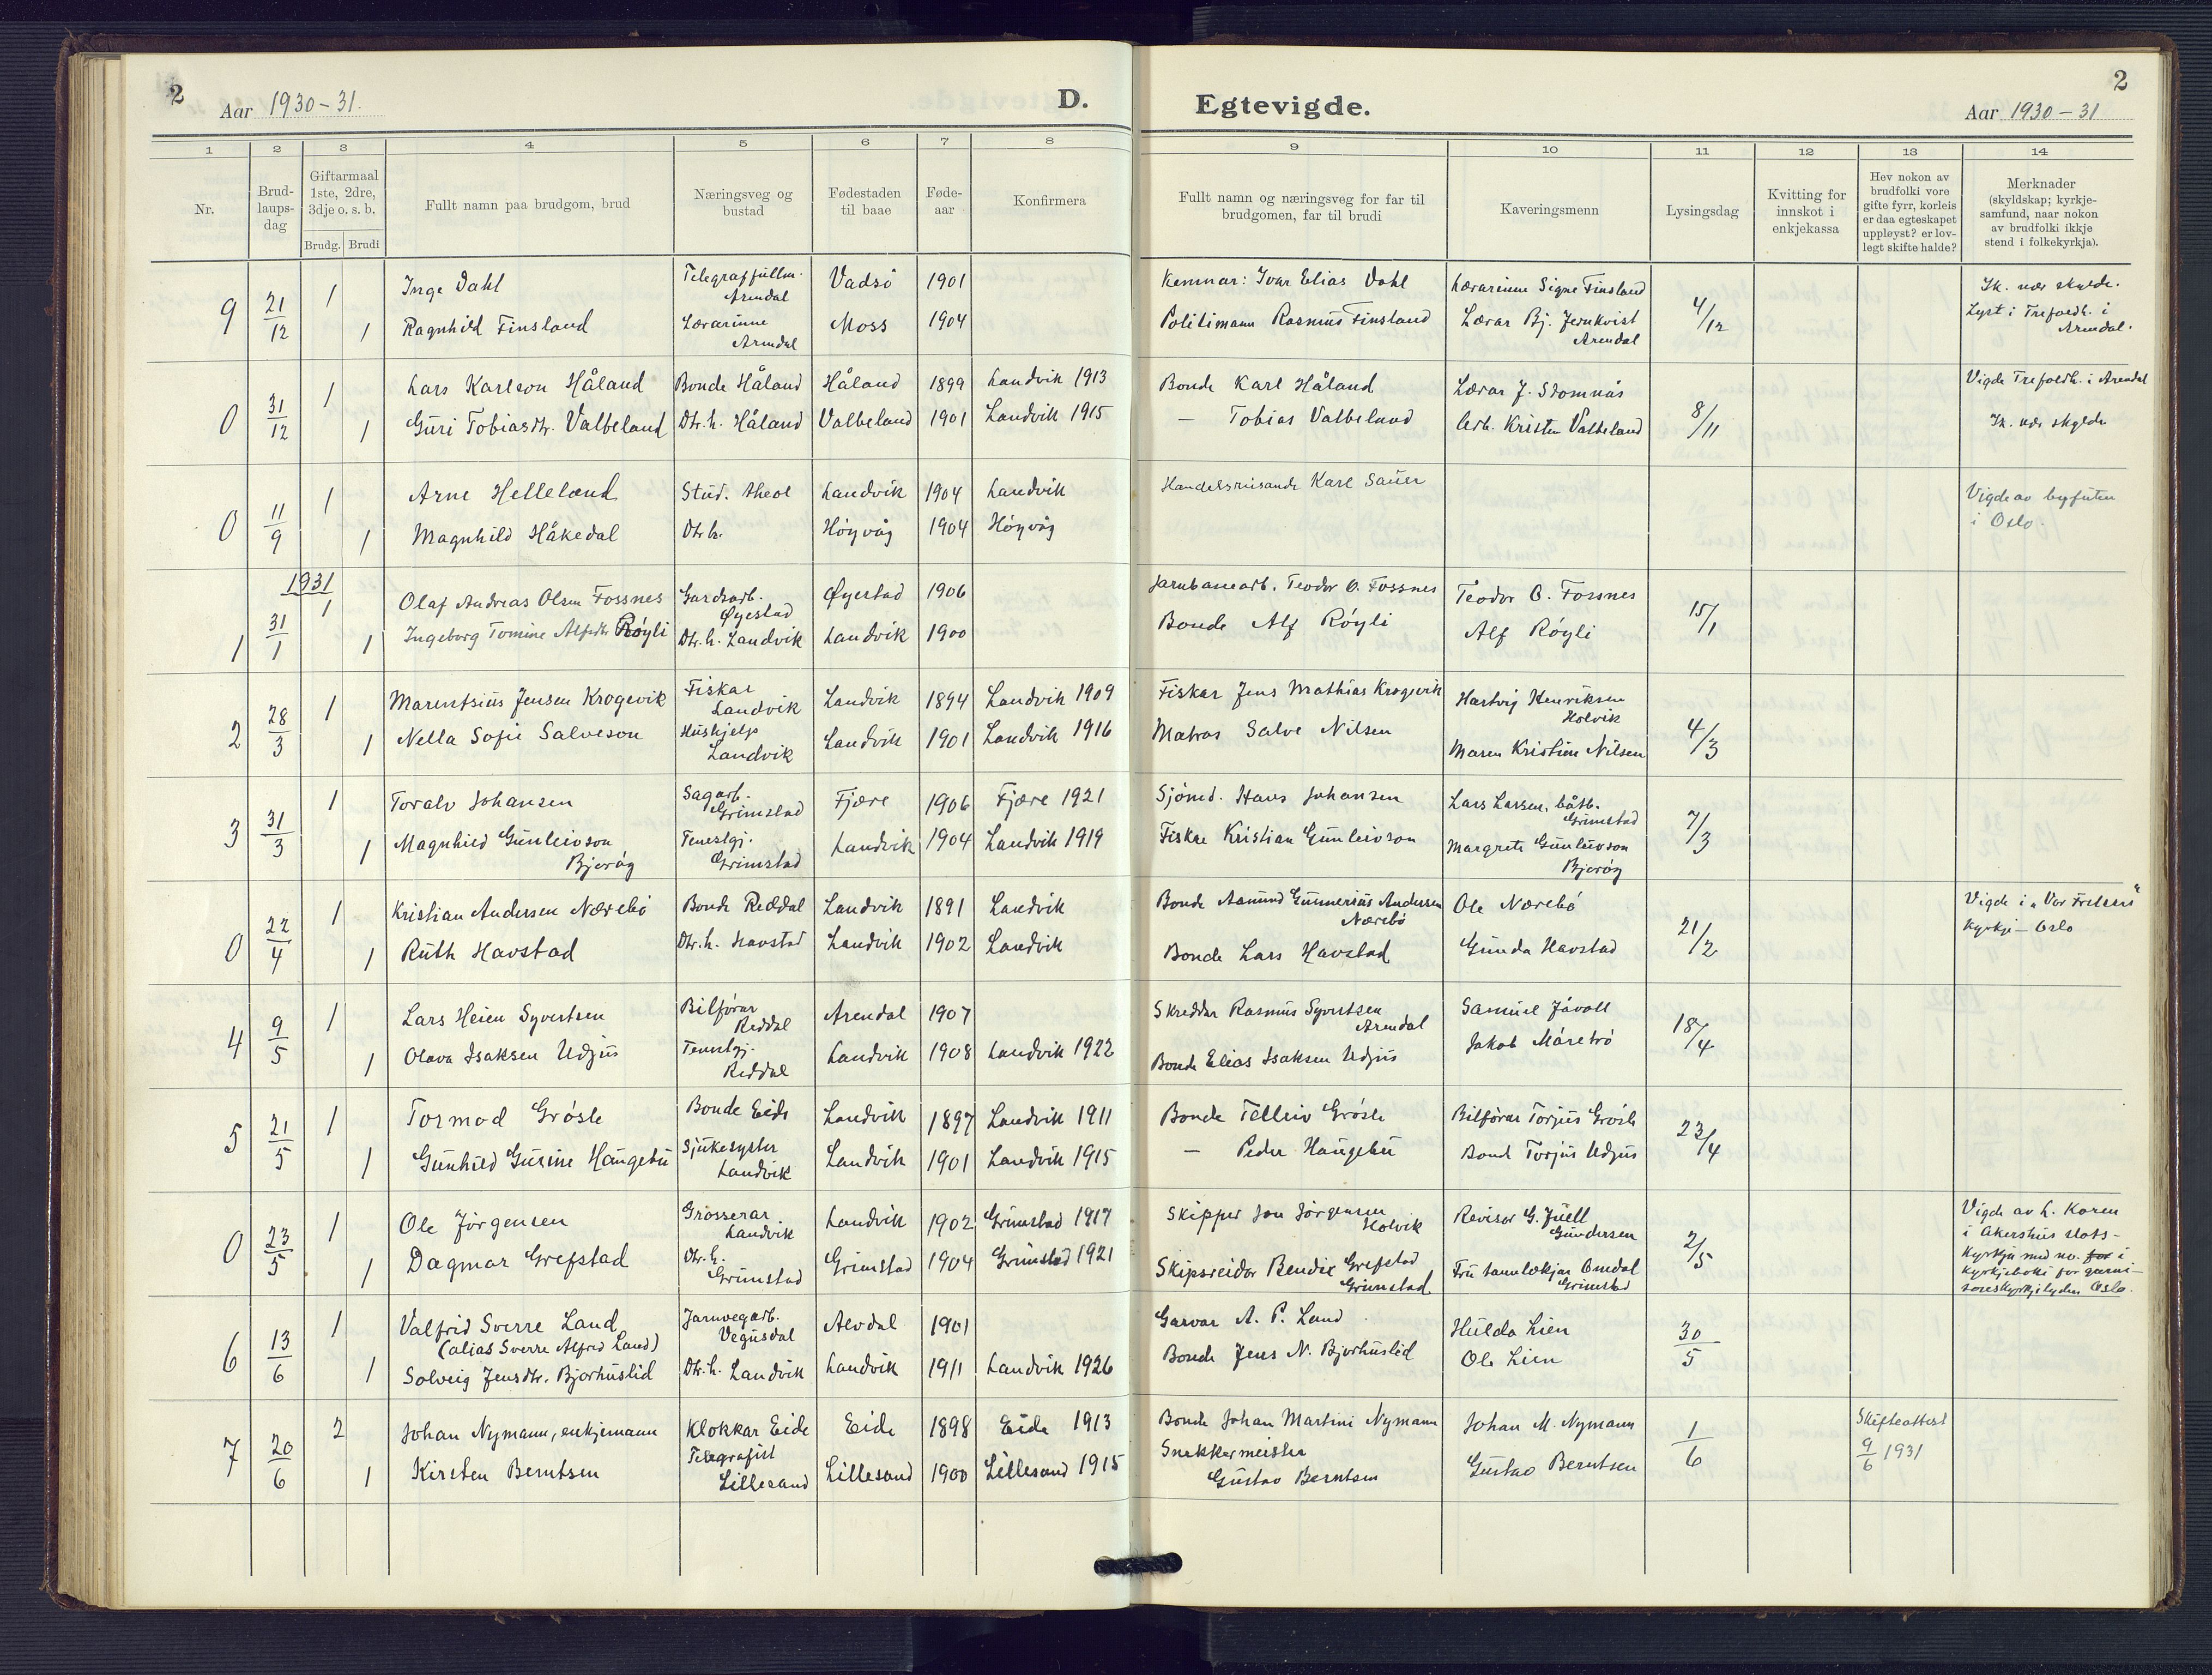 2 Aar 1930-31. D.
Egtevigde. Aar 1930-31 2
1 2 3 4 5 6 7 8 9 10 11 12 13 14
Nr.
Brud-
laups-
dag
Giftarmaal
1ste, 2dre,
3dje o. s. b.
Brudg. Brudi
Fullt namn paa brudgom, brud
Næringsveg og
bustad
Fødestaden
til baae
Føde-
aar
Konfirmera
Fullt namn og næringsveg for far til
brudgomen, far til brudi
Kaveringsmenn
Lysingsdag
Kvitting for
innskot i
enkjekassa
Hev nokon av
brudfolki vore
gifte fyrr, korleis
er daa egteskapet
uppløyst? er lov-
legt skifte halde?
Merknader
(skyldskap; kyrkje-
samfund, naar nokon
av brudfolki ikkje
stend i folkekyrkja).
9 21/12 1 Inge Dahl Telegraffullm. Arendal Vadsö 1901 Kemnar: Ivar Elias Dahl Lærarinne Signe Finsland 4/12 Ik. nær skylde.
1 Ragnhild Finsland Lærarinne Arendal Moss 1904 Politimann Rasmus Finsland Lærar Bj. Jernkvist Arendal Lyst i Trefoldh. i Arendal.
0 31/12 1 Lars Karlson Håland Bonde Håland Håland 1899 Landvik 1913 Bonde Karl Håland Lærar J. Stomnås 8/11 Vigde Trefoldh. i Arendal
1 Guri Tobiasdtr. Valbeland Dtr. h. Håland Valbeland 1901 Landvik 1915 — Tobias Valbeland Arb. Kristen Valbeland Ik. nær skylde
0 11/9 1 Arne Helleland Stud. theol Landvik 1904 Landvik Handelsreisande Karl Sauer Vigde av byfuten
1 Magnhild Håkedal Dtr. h. Høyvåg 1904 Høyvåg i Oslo.
1931
1 31/1 1 Olaf Andreas Olsen Fossnes Gardsarb. Øyestad Øyestad 1906 Jarnbanearb. Teodor O. Fossnes Teodor O. Fossnes 15/1
1 Ingeborg Tomine Alfsdtr Röyli Dtr. h. Landvik Landvik 1900 Bonde Alf Röyli Alf Röyli
2 28/3 1 Marentsius Jensen Krogevik Fiskar Landvik Landvik 1894 Landvik 1909 Fiskar Jens Mathias Krogevik Hartvig Henriksen Holvik 4/3
1 Nella Sofie Salveson Hushjelp Landvik Landvik 1901 Landvik 1916 Matros Salve Nilsen Maren Kristine Nilsen
3 31/3 1 Toralv Johansen Sagarb. Grimstad Fjære 1906 Fjære 1921 Sjömd. Hans Johansen Lars Larsen, båtb. Grimstad 7/3
1 Magnhild Gunleivson Bjoråg Tenestgj. Grimstad Landvik 1904 Landvik 1919 Fiskar Kristian Gunleivson Margrete Gunleivson Bjoråg
0 22/4 1 Kristian Andersen Nærebö Bonde Reddal Landvik 1891 Landvik Bonde Aanund Gunnersius Andersen Nærebö Ole Nærebö 21/2 Vigde i "Vor Frelsers"
1 Ruth Havstad Dtr. h. Havstad Landvik 1902 Landvik Bonde Lars Havstad Gunda Havstad Kyrkje – Oslo
4 9/5 1 Lars Heien Syvertsen Bilförar Reddal Arendal 1907 Skreddar Rasmus Syvertsen Arendal Samuel Jåvoll 18/4
1 Olava Isaksen Udjus Tenestgj. Reddal Landvik 1908 Landvik 1922 Bonde Elias Isaksen Udjus Jakob Måretrö
5 21/5 1 Tormod Grösle Bonde Eide Landvik 1897 Landvik 1911 Bonde Tellev Grösle Bilförar Torjus Grösle 23/4
1 Gunhild Gurine Haugebu Sjukesyster Landvik Landvik 1901 Landvik 1915 — Peder Haugebu Bond Torjus Udjus
0 23/5 1 Ole Jörgensen Grosserar Landvik Landvik 1902 Grimstad 1917 Skipper Jon Jörgensen Holvik Revisor G. Juell Gundersen 2/5 Vigde av L. Koren
i Akershus slots-
1 Dagmar Grefstad Dtr. h. Grimstad Grimstad 1904 Grimstad 1921 Skipsreidar Bendix Grefstad Grimstad Fru tannlækjar Omdal Grimstad kyrkja med no. for i
kyrkjeboki for garni-
soneskyrkjelyden Oslo.
6 13/6 1 Valfrid Sverre Land Jarnvegarb. Vegusdal Alvdal 1901 Garvar A. P. Land Hulda Lien 30/5
(alias Sverre Alfred Land)
1 Solveig Jensdtr. Bjorhuslid Dtr. h. Landvik Landvik 1911 Landvik 1926 Bonde Jens N. Bjorhuslid Ole Lien
7 20/6 2 Johan Nymann, enkjemann Klokkar Eide Eide 1898 Eide 1913 Bonde Johan Martini Nymann Johan M. Nymann 1/6 Skifteattest
1 Kirsten Berntsen Telegrafist Lillesand Lillesand 1900 Lillesand 1915 Snekkermeister Gustav Berntsen Gustav Berntsen 9/6 1931